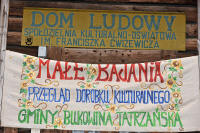 DOM LUDOWY
SPÓŁDZIELNIA KULTURALNO-OŚWIATOWA
IM. FRANCISZKA ĆWIŻEWICZA
MAŁE BAJANIA
PRZEGLĄD DOROBKU KULTURALNEGO
GMINY BUKOWINA TATRZAŃSKA